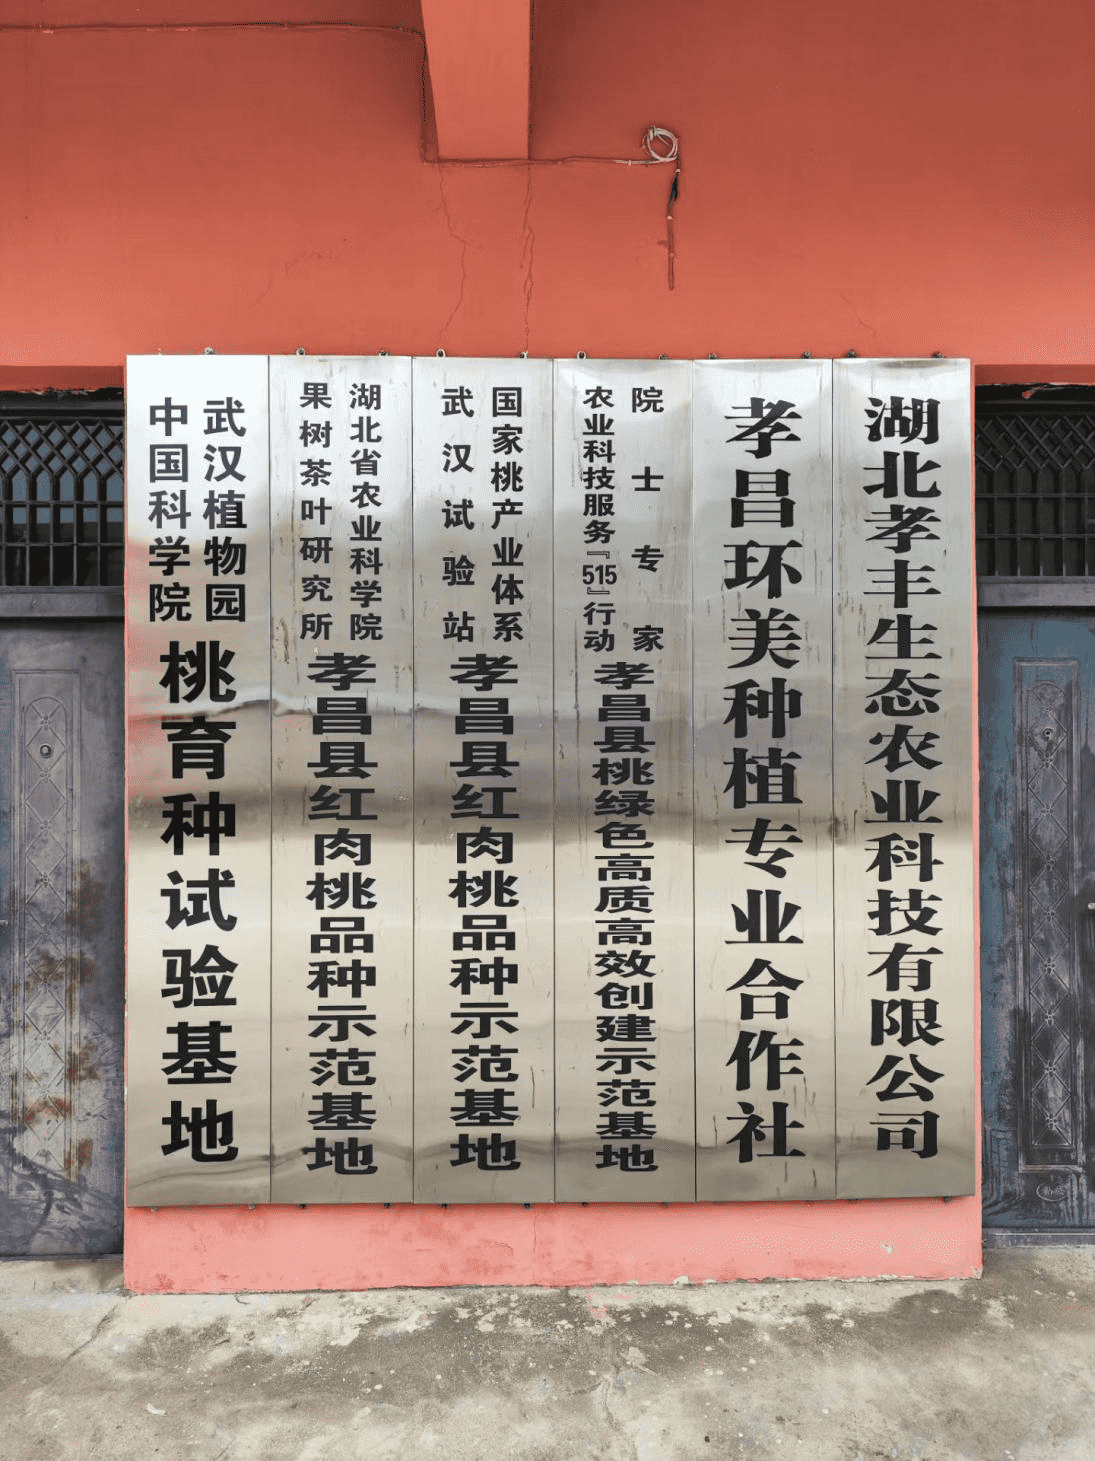 湖北孝丰生态农业科技有限公司
孝昌环美种植专业合作社
院士专家
农业科技服务『515』行动
孝昌县桃绿色高质高效创建示范基地
国家桃产业体系
武汉试验站
孝昌县红肉桃品种示范基地
湖北省农业科学院
果树茶叶研究所
孝昌县红肉桃品种示范基地
武汉植物园
中国科学院
桃育种试验基地